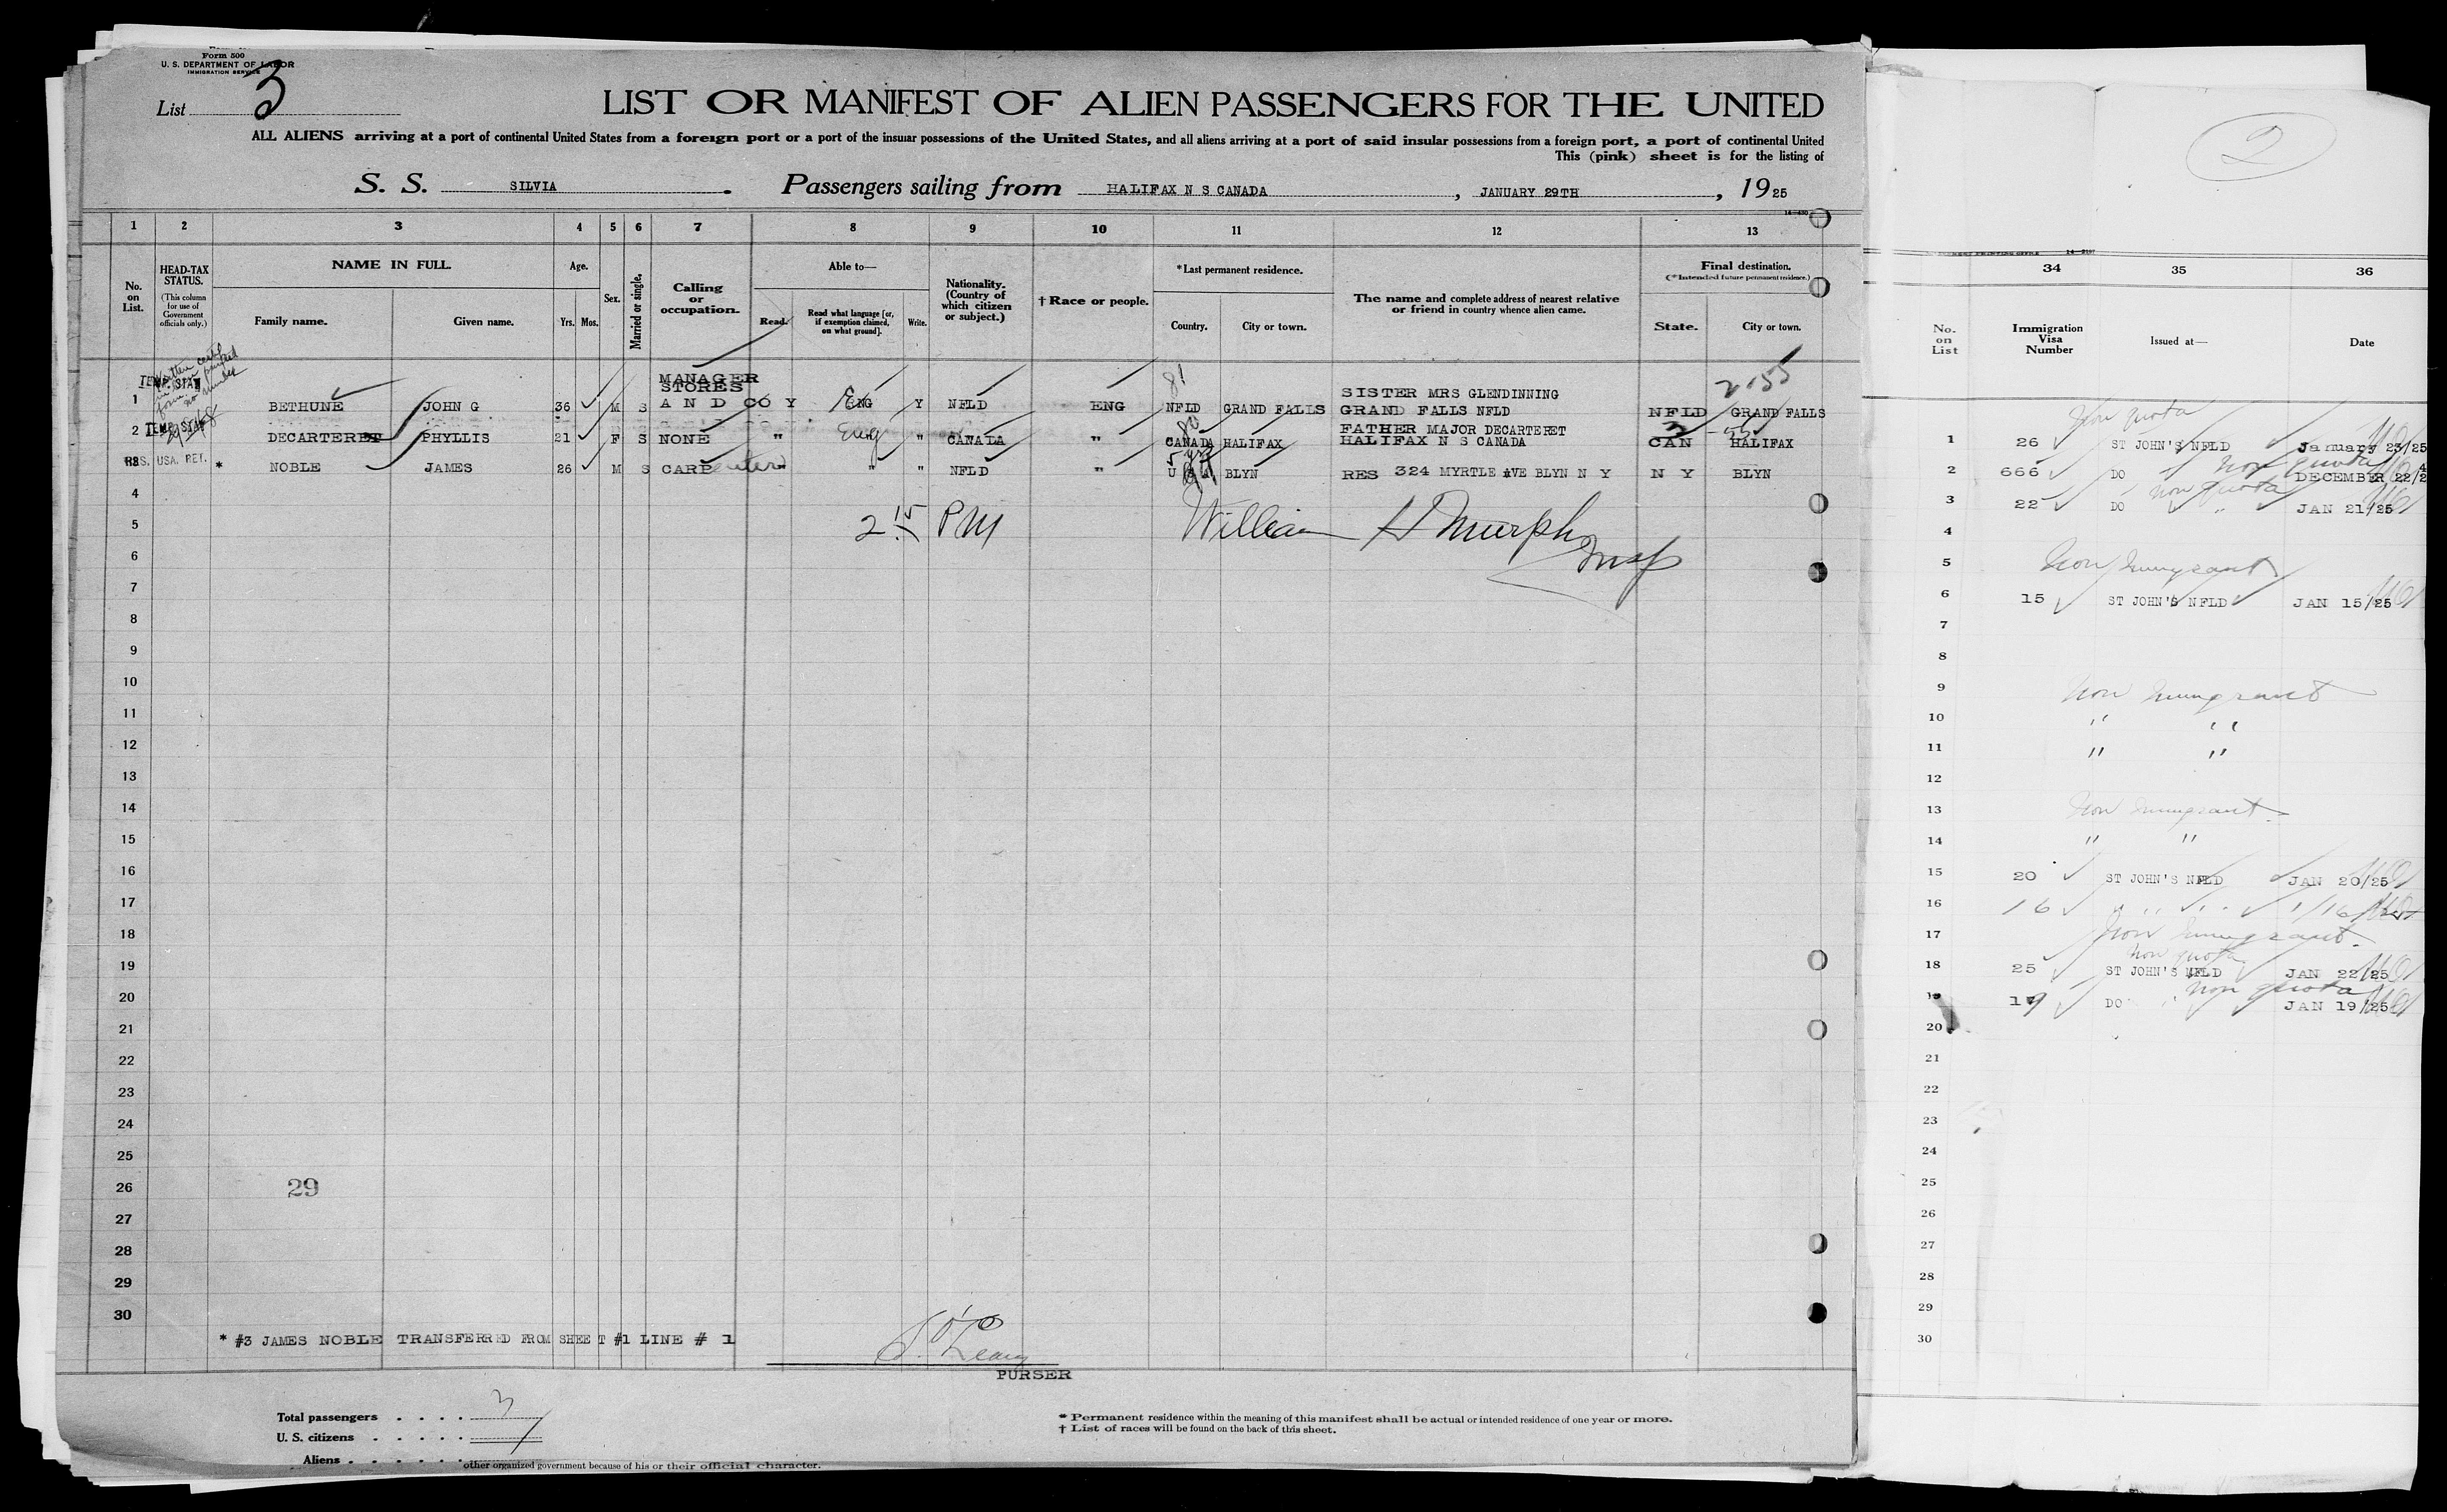 Form 500
U. S. DEPARTMENT OF LABOR
IMMIGRATION SERVICE
List 3
LIST OR MANIFEST OF ALIEN PASSENGERS FOR THE UNITED
ALL ALIENS arriving at a port of continental United States from a foreign port or a port of the insular possessions of the United States, and all aliens arriving at a port of said insular possessions from a foreign port, a port of continental United
This (pink) sheet is for the listing of
S. S. SILVIA . Passengers sailing from HALIFAX N S CANADA , JANUARY 29TH , 1925
1 2 3 4 5 6 7 8 9 10 11 12 13
No. on List.
HEAD-TAX STATUS.
(This column for use of Government officials only.)
NAME IN FULL.
Family name. Given name.
Age.
Yrs. Mos.
Sex.
Married or single.
Calling or occupation.
Able to—
Read. Read what language [or, if exemption claimed, on what ground]. Write.
Nationality. (Country of which citizen or subject.)
† Race or people.
*Last permanent residence.
Country. City or town.
The name and complete address of nearest relative or friend in country whence alien came.
Final destination.
(*Intended future permanent residence.)
State. City or town.
MANAGER
STORES
TEMP. STAY
SISTER MRS GLENDINNING
1 BETHUNE JOHN G 36 M S AND COY ENG Y NFLD ENG NFLD GRAND FALLS GRAND FALLS NFLD NFLD GRAND FALLS
FATHER MAJOR DECARTERET
2 TEMP. STAY DECARTERET PHYLLIS 21 F S NONE " Eng " CANADA " CANADA HALIFAX HALIFAX N S CANADA CAN HALIFAX
3 USA. RET. * NOBLE JAMES 26 M S CARPenter " " " NFLD " U S A BLYN RES 324 MYRTLE AVE BLYN N Y N Y BLYN
4
5 2.15 PM William H Murphy
Insp
6
7
8
9
10
11
12
13
14
15
16
17
18
19
20
21
22
23
24
25
26 29
27
28
29
30
* #3 JAMES NOBLE TRANSFERRED FROM SHEET #1 LINE # 1
PURSER
Total passengers . . . . 3
U. S. citizens . . . . .
Aliens . . . . . .
* Permanent residence within the meaning of this manifest shall be actual or intended residence of one year or more.
† List of races will be found on the back of this sheet.
other organized government because of his or their official character.
2
34 35 36
No. on List
Immigration Visa Number
Issued at—
Date
Non quota
1 26 ST JOHN'S NFLD January 23/25
Non quota
2 666 DO DECEMBER 22/24
Non quota
3 22 DO " JAN 21/25
4
5 Non Immigrant
6 15 ST JOHN'S NFLD JAN 15/25
7
8
9 Non Immigrant
10 " "
11 " "
12
13 Non Immigrant
14 " "
15 20 ST JOHN'S NFLD JAN 20/25
16 16
17 Non Immigrant
Non quota
18 25 ST JOHN'S NFLD JAN 22/25
Non quota
19 DO JAN 19/25
20
21
22
23
24
25
26
27
28
29
30